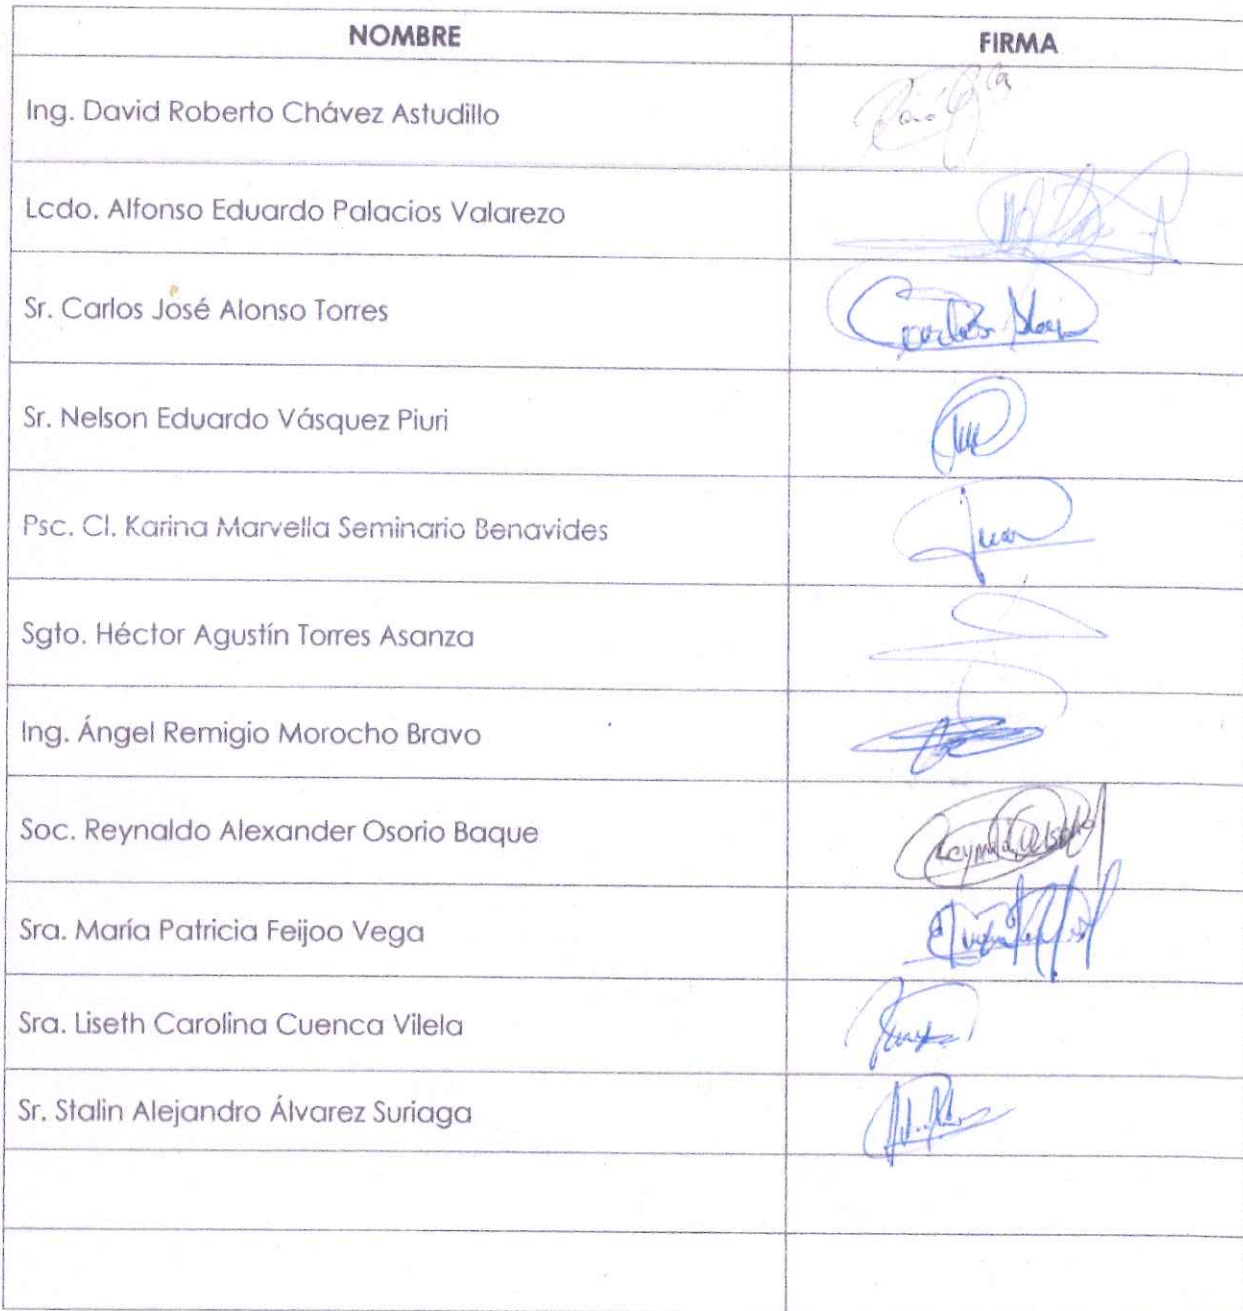 NOMBRE FIRMA
Ing. David Roberto Chávez Astudillo
Lcdo. Alfonso Eduardo Palacios Valarezo
Sr. Carlos José Alonso Torres
Sr. Nelson Eduardo Vásquez Piuri
Psc. Cl. Karina Marvella Seminario Benavides
Sgto. Héctor Agustín Torres Asanza
Ing. Ángel Remigio Morocho Bravo
Soc. Reynaldo Alexander Osorio Baque
Sra. María Patricia Feijoo Vega
Sra. Liseth Carolina Cuenca Vilela
Sr. Stalin Alejandro Álvarez Suriaga